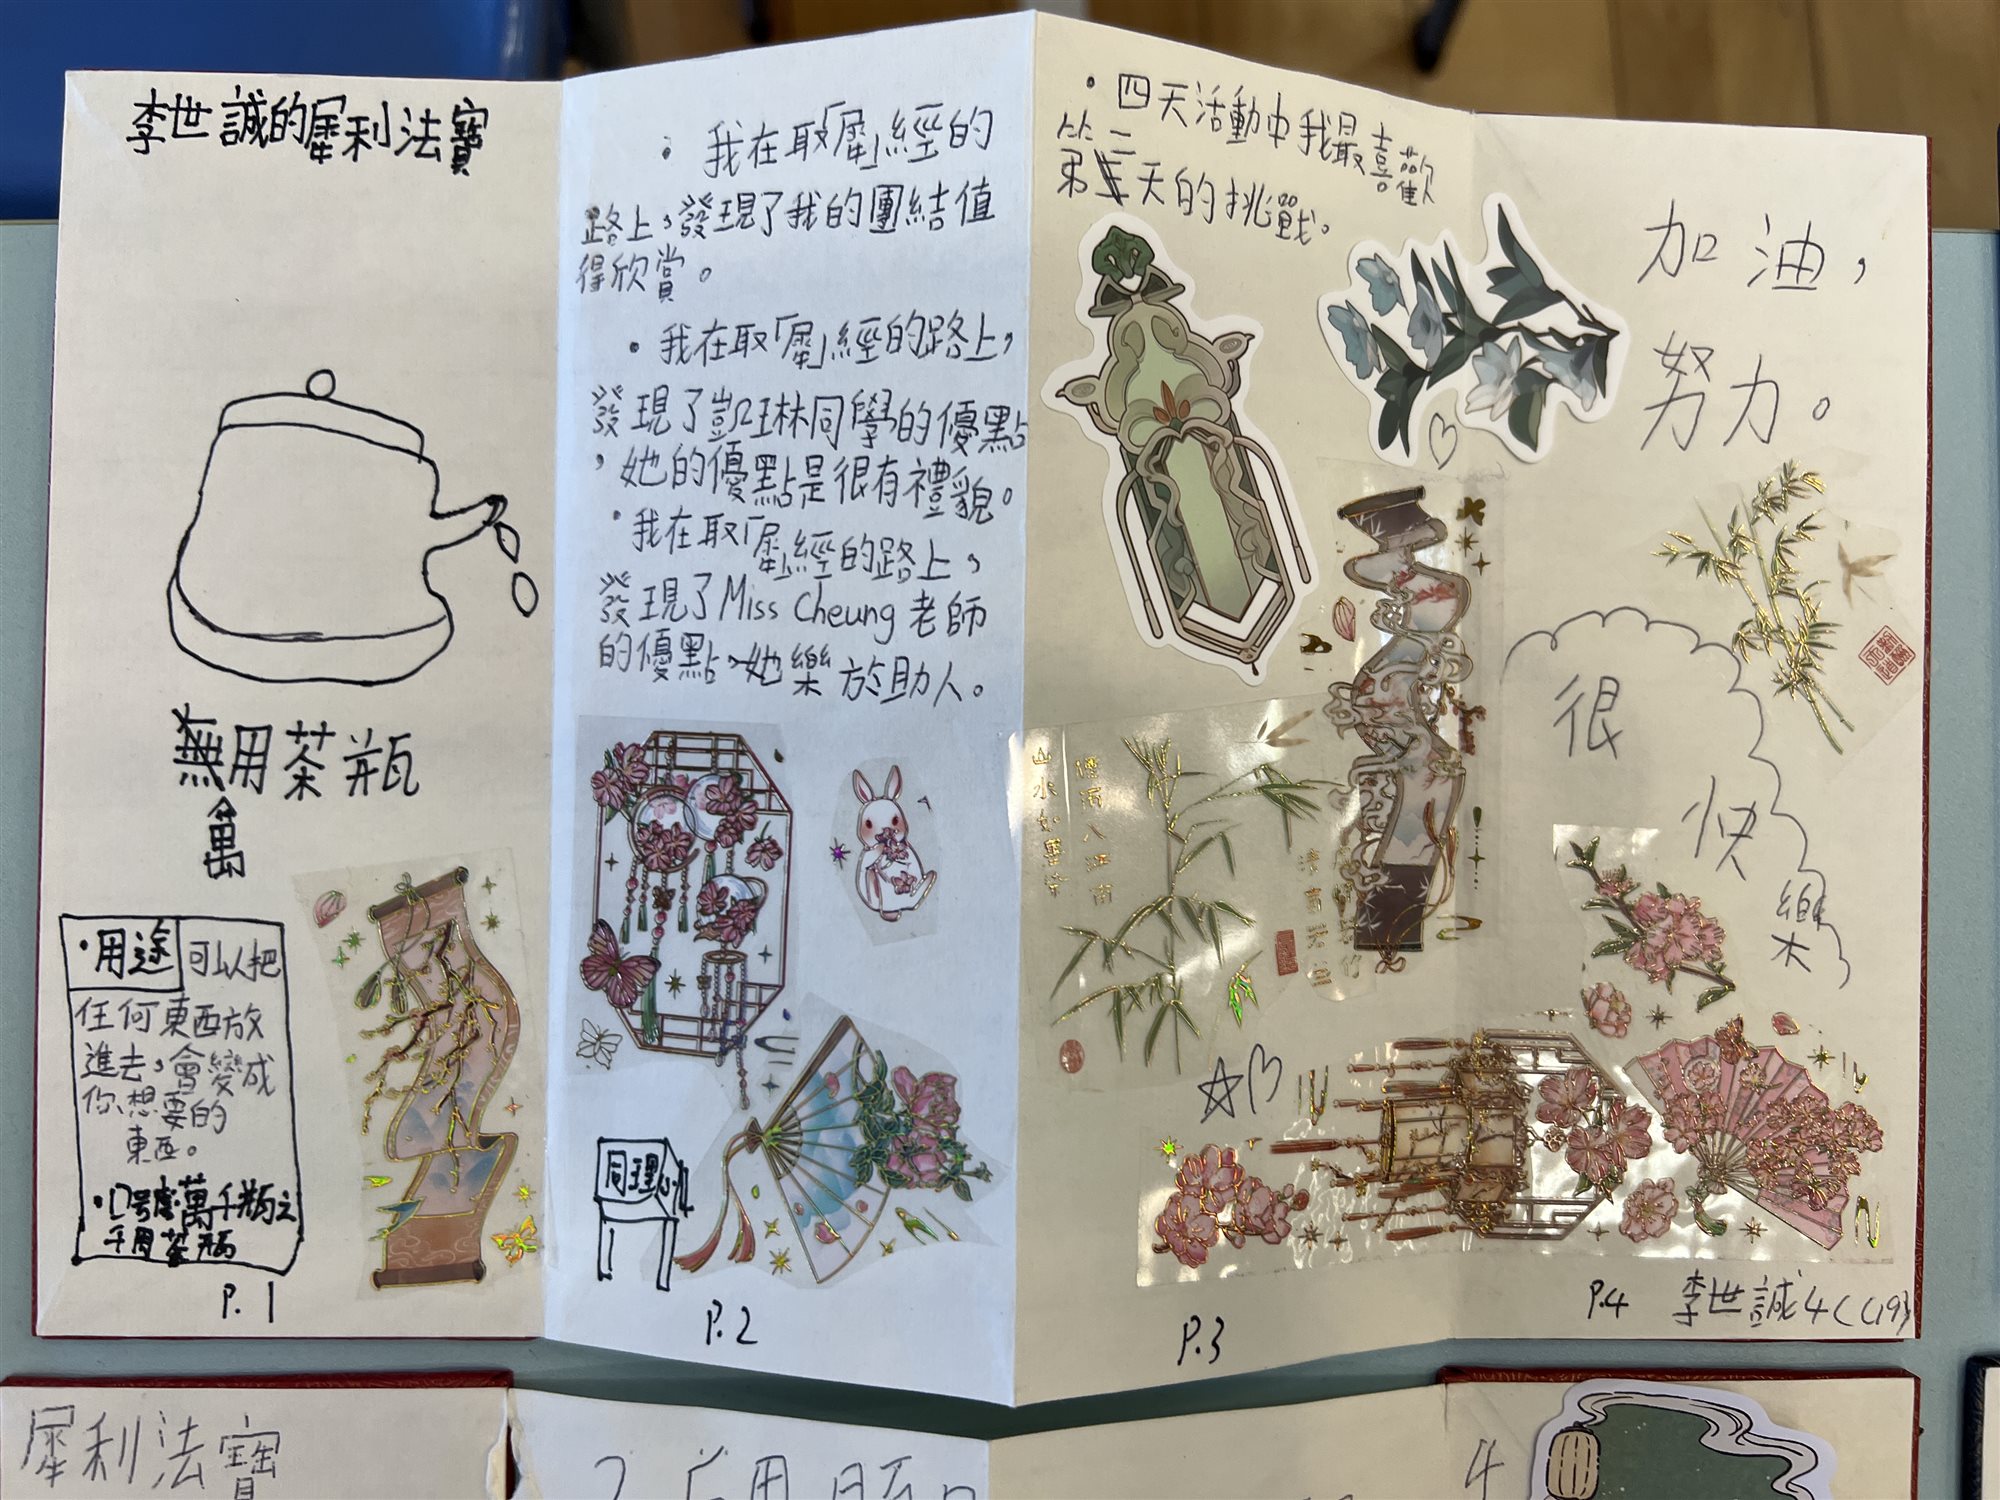 李世誠的犀利法寶
無用茶瓶
萬
·用途 可以把
任何東西放
進去，會變成
你想要的
東西。
P.1
·我在取「犀」經的
路上，發現了我的團結值
得欣賞。
·我在取「犀」經的路上，
發現了凱琳同學的優點
，她的優點是很有禮貌。
·我在取「犀」經的路上，
發現了Miss Cheung老師
的優點，她樂於助人。
同理心
P.2
·四天活動中我最喜歡
第二天的挑戰。
P.3
加油，
努力。
很
快
樂
P.4 李世誠4C(19)
犀利法寶